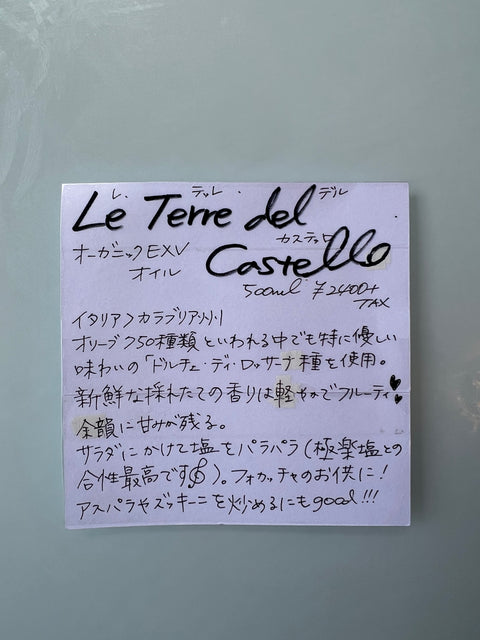 レ・テッレ・デル
Le Terre del
カステッロ
Castello
オーガニックEXV
オイル
500ml ¥2400+
TAX
イタリア>カラブリア州
オリーブ750種類といわれる中でも特に優しい
味わいの「ドルチェ・ディ・ロッサーナ種を使用。
新鮮な採れたての香りは軽やかでフルーティ
余韻に甘みが残る。
サラダにかけて塩をパラパラ(極楽塩との
合性最高です)。フォカッチャのお供に!
アスパラやズッキーニを炒めるにもgood!!!